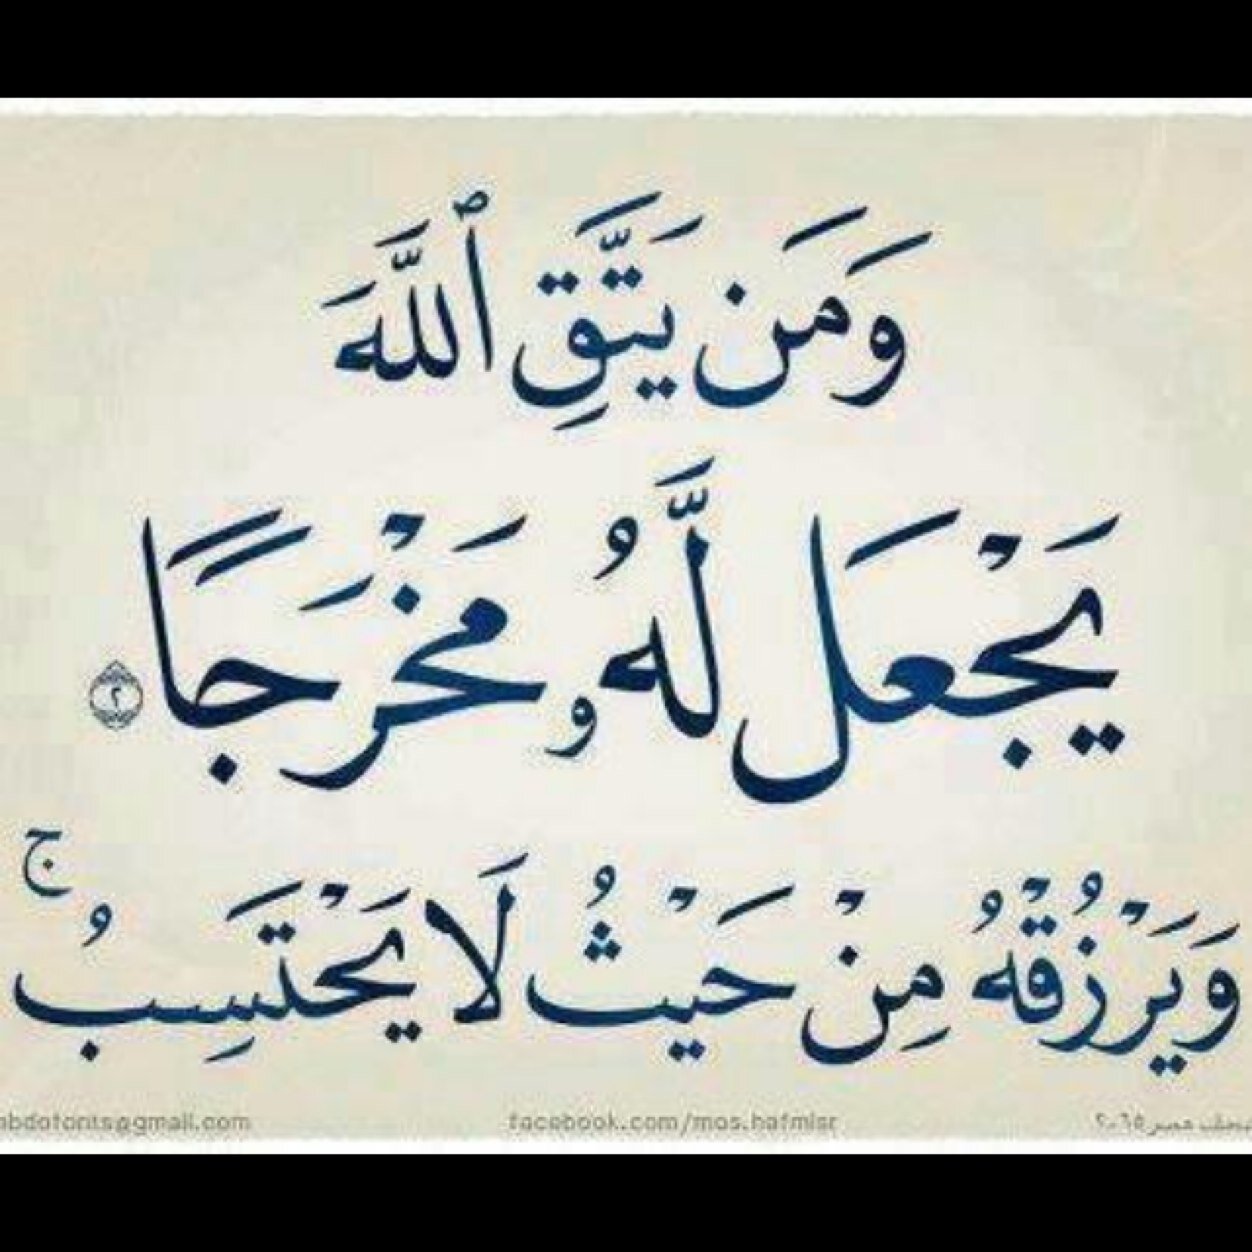 وَمَن يَتَّقِ ٱللَّهَ
يَجْعَل لَّهُۥ مَخْرَجًا ٢
وَيَرْزُقْهُ مِنْ حَيْثُ لَا يَحْتَسِبُ ۚ
abdofonts@gmail.com facebook.com/mos.hafmisr مصحف مصر ٢٠١٥